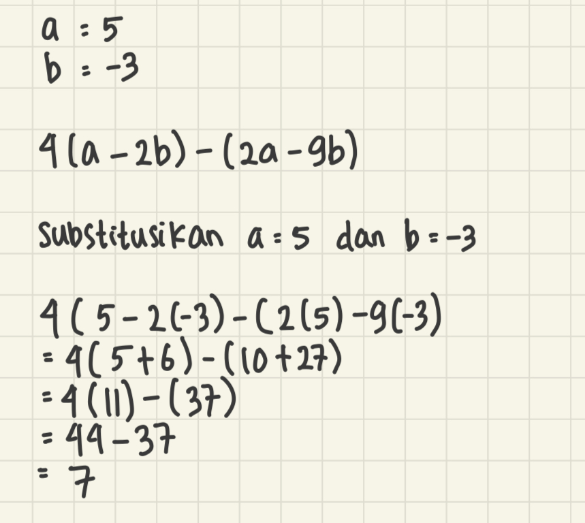 a = 5
b = -3
4(a - 2b) - (2a - 9b)
Substitusikan a = 5 dan b = -3
4( 5 - 2(-3) - (2(5) - 9(-3)
= 4( 5 + 6) - (10 + 27)
= 4(11) - (37)
= 44 - 37
= 7